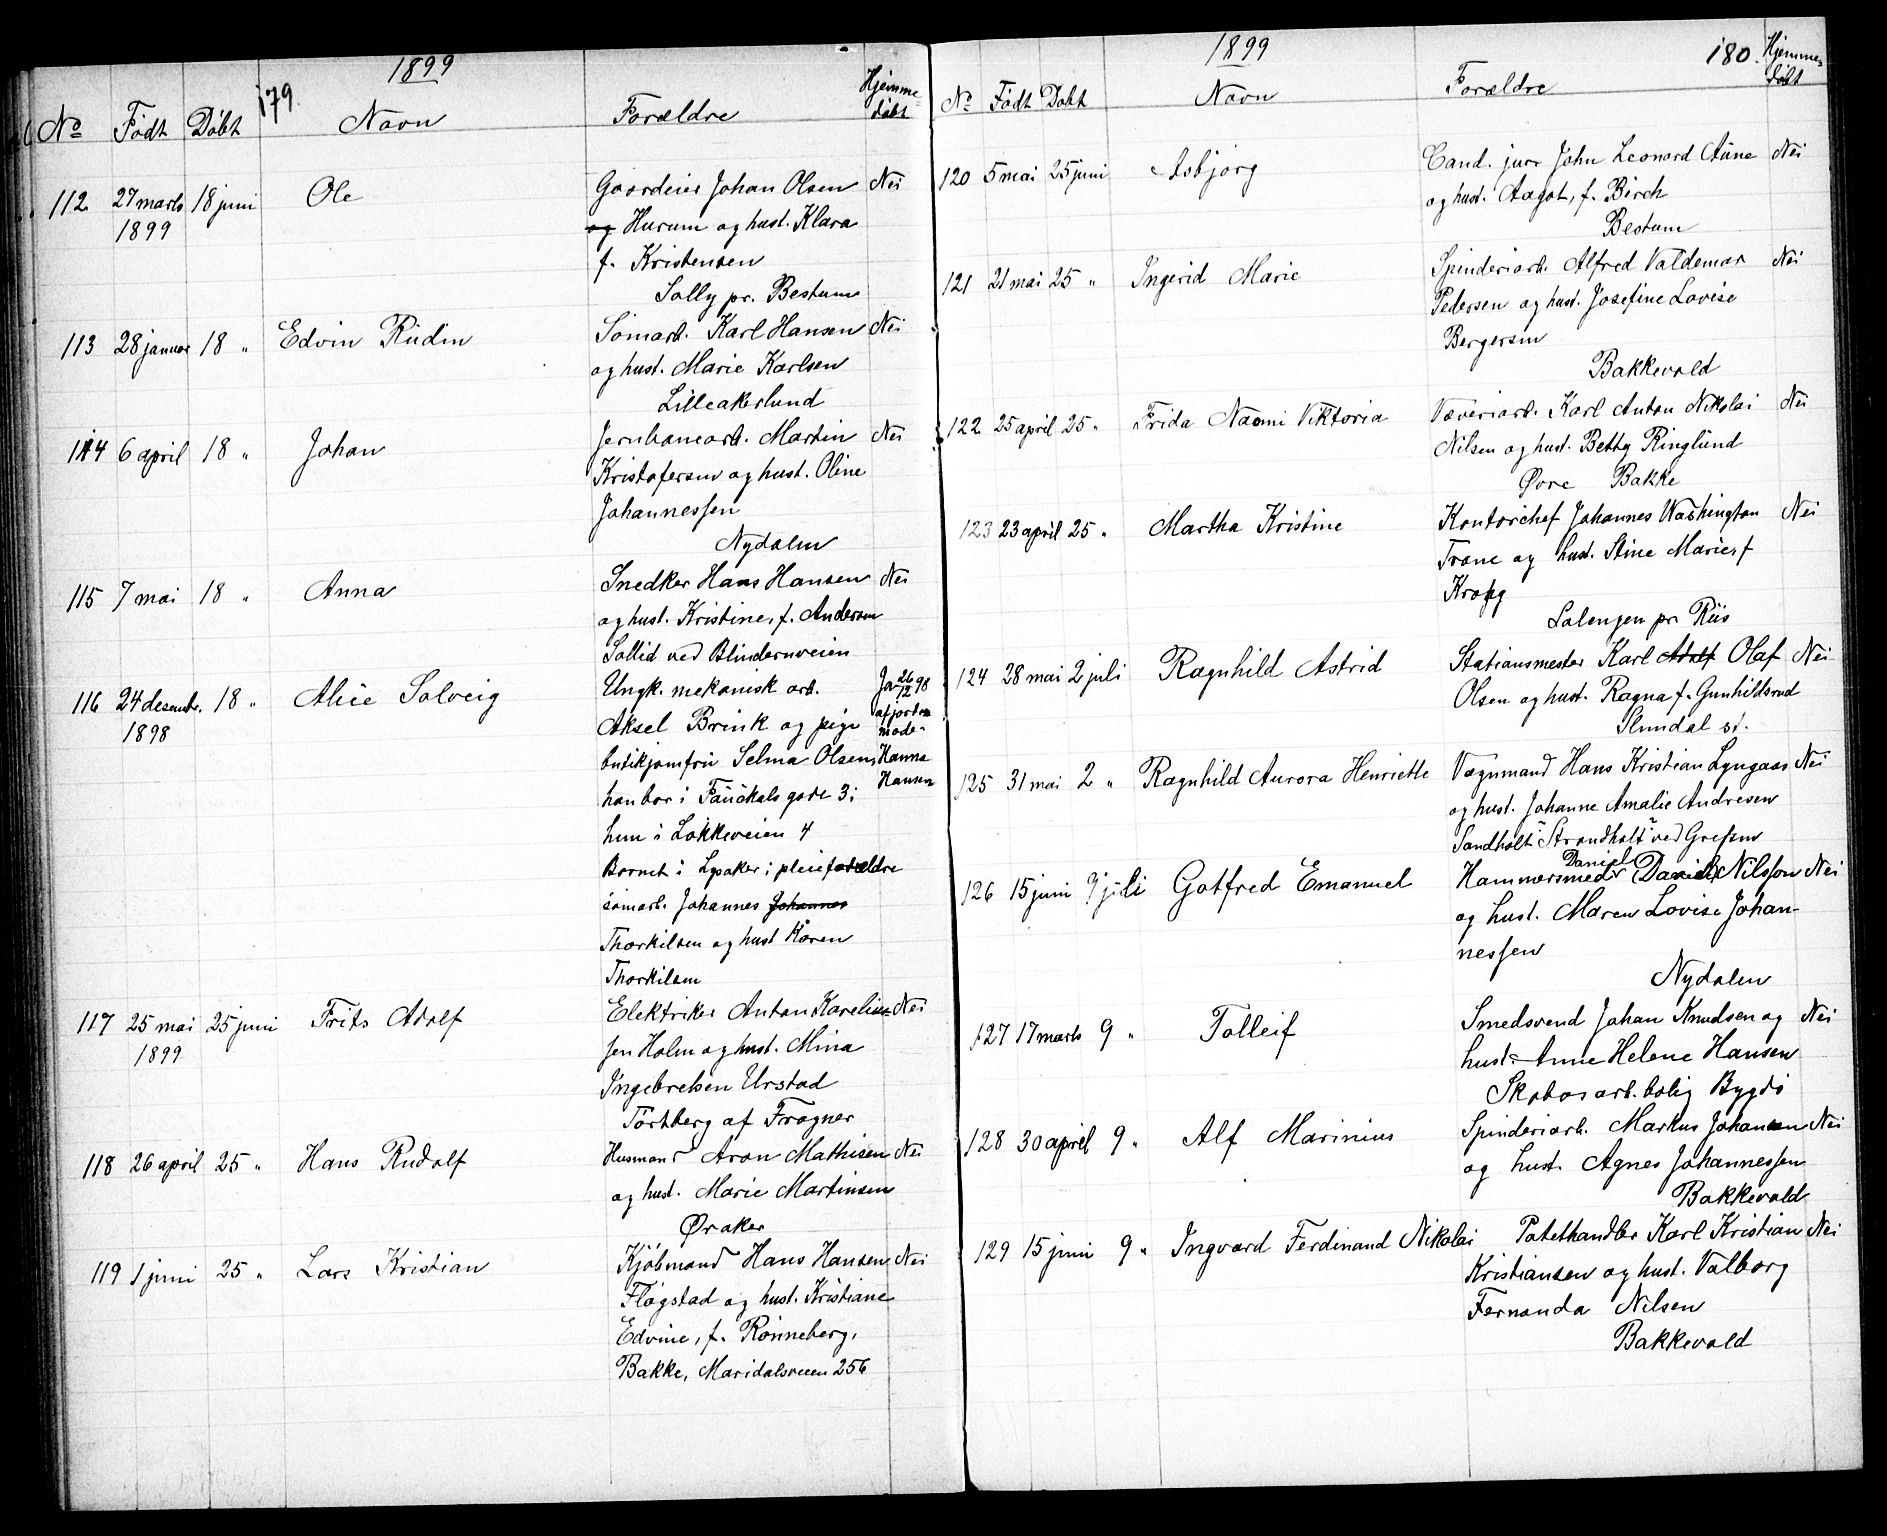 1899
179.
No Født Døbt Navn Forældre Hjemme-
døbt
112 27 marts 18 juni Ole Gaardeier Johan Olsen Nei
1899 og Hurum og hust. Klara
f. Kristensen
Solly pr. Bestum
113 28 januar 18 " Edvin Rudin Sömarb. Karl Hansen Nei
og hust. Marie Karlsen
Lilleakerlund
114 6 april 18 " Johan Jernbanearb. Martin Nei
Kristofersen og hust. Oline
Johannessen
Nydalen
115 7 mai 18 " Anna Snedker Hans Hansen Nei
og hust. Kristine, f. Andersen
Sollid ved Blindernveien
116 24 desembr. 18 " Alice Solveig Ungk. mekanisk arb. Ja 26/12 98
1898 Aksel Brink og pige af jordemode
butikjomfru Selma Olsen, Hanna
han bor i Fauchals gade 3; Hansen
hun i Lökkeveien 4
Barnet i Lysaker i pleieforældre
sömarb. Johannes Johannes
Thorkilsen og hust Karen
Thorkilsen
117 25 mai 25 juni Frits Adolf Elektriker Anton Karelius Nei
1899 sen Holm og hust. Mina
Ingebretsen Urstad
Törtberg af Frogner
118 26 april 25 " Hans Rudolf Husmand Aron Mathisen Nei
og hust. Marie Martinsen
Øraker
119 1 juni 25 " Lars Kristian Kjöbmand Hans Hansen Nei
Flögstad og hust. Kristiane
Edvine, f. Rönneberg,
Bakke, Maridalsveien 256
1899
180
No Født Døbt Navn Forældre Hjemme-
døbt
120 5 mai 25 juni Asbjörg Cand. jur. John Leonard Aune Nei
og hust. Aagot, f. Birch
Bestum
121 21 mai 25 " Ingerid Marie Spinderiarb. Alfred Valdemar Nei
Pedersen og hust. Josefine Lovise
Bergersen
Bakkevold
122 25 april 25 " Frida Naomi Viktoria Væveriarb. Karl Anton Nikolai Nei
Nilsen og hust. Betty Ringlund
Øvre Bakke
123 23 april 25 " Martha Kristine Kontorchef Johannes Washington Nei
Trane og hust. Stine Marie, f
Kropg
Lalengen pr. Riis
124 28 mai 2 juli Ragnhild Astrid Stationsmester Karl Adolf Olaf Nei
Olsen og hust. Ragna f. Gunhildsrud
Slundal st.
125 31 mai 2 " Ragnhild Aurora Henriette Vognmand Hans Kristian Lyngaas Nei
og hust. Johanne Amalie Andresen
Sandholt "Strandholt" ved Grefsen
126 15 juni 9 juli Gotfred Emanuel Hammersmed Daniel (Daniel) Nilsson Nei
og hust. Maren Lovise Johan-
nessen
Nydalen
127 17 marts 9 " Tolleif Smedsvend Johan Knudsen og Nei
hust. Anne Helene Hansen
Skabos arb. bolig Bygdö
128 30 april 9 " Alf Marinius Spinderiarb. Markus Johansen Nei
og hust. Agnes Johannessen
Bakkevold
129 15 juni 9 " Ingvard Ferdinand Nikolai Potethandler Karl Kristian Nei
Kristiansen og hust. Valborg
Fernanda Nilsen
Bakkevold